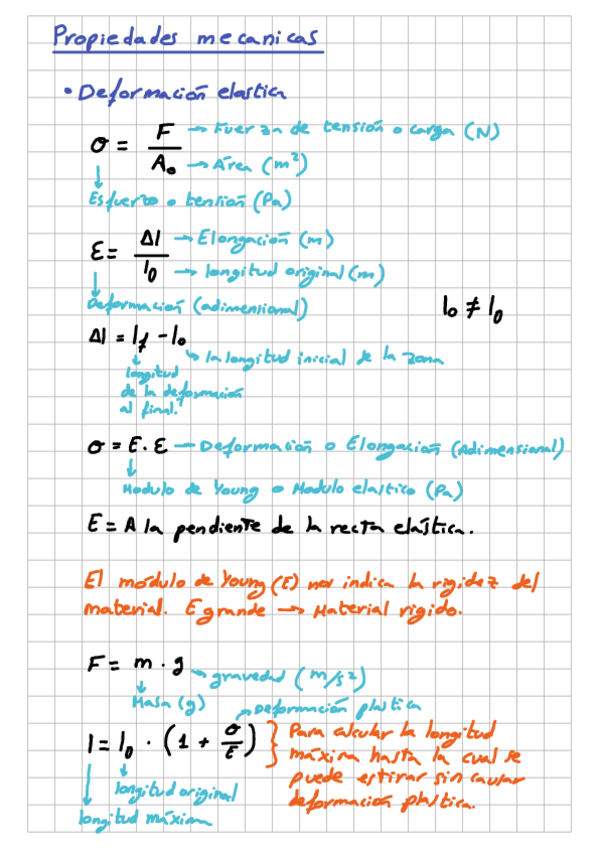 Propiedades mecanicas
• Deformación elastica
σ = F / A₀
→ Fuerza de tensión o carga (N)
→ Área (m²)
Esfuerzo o tensión (Pa)
ε = Δl / l₀
→ Elongación (m)
→ longitud original (m)
Deformación (adimensional)
lo ≠ l₀
Δl = lf - lo
→ la longitud inicial de la zona
longitud
de la deformación
al final.
σ = E . ε — Deformación o Elongación (Adimensional)
Modulo de Young o Modulo elastico (Pa)
E = A la pendiente de la recta elástica.
El módulo de Young (E) nos indica la rigidez del
material. E grande → Material rigido.
F = m · g → gravedad (m/s²)
Masa (g)
→ Deformación plastica
l = l₀ · (1 + σ/E)
Para calcular la longitud
máxima hasta la cual se
puede estirar sin causar
deformación plastica.
longitud original
longitud máxima